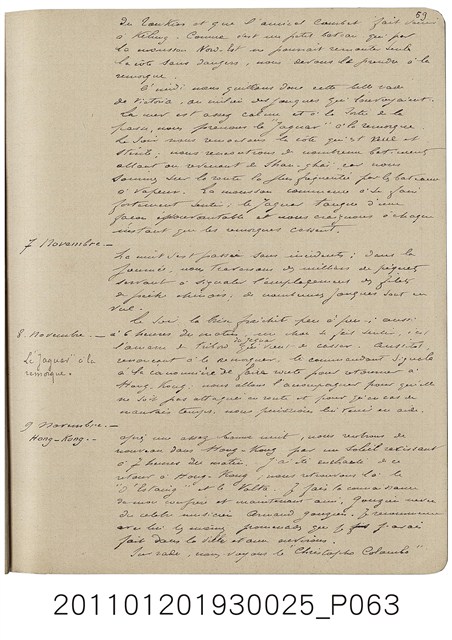 59
du Yankin et que l'amiral Courbet fait venir
à Kelung. Comme c'est un petit bateau qui par
la mousson Nord-Est ne pourrait remonter seule
la côte sans dangers, nous devons la prendre à la
remorque.
C'midi nous quittons donc cette belle rade
de Victoria, au milieu des jonques qui louvoyaient.
La mer est assez calme et à la sortie de la
passe, nous prenons le "Jaguar" à la remorque.
Le soir nous revoyons la côte qui est nue et
stérile; nous rencontrons de nombreux bâtiments
allant ou revenant de Shang-haï car nous
sommes sur la route la plus fréquentée par les bateaux
à vapeur. La mousson commence à se faire
fortement sentir; le Jaguar tangue d'une
façon épouvantable et nous craignons à chaque
instant que les remorques cassent.
7 Novembre _
La nuit s'est passée sans incidents; dans la
journée, nous traversons des milliers de piquets
servant à signaler l'emplacement des filets
de pêche chinois. De nombreuses jonques sont en
vue.
Le soir le vent fraîchit peu à peu; aussi
8. Novembre _
à 6 heures du matin un choc se fait sentir, c'est
du Jaguar
Le "Jaguar" à la
remorque.
qui vient de casser. Aussitôt
renonçant à le remorquer, le commandant signale
à la canonnière de faire route pour retourner à
Hong-Kong. nous allons l'accompagner pour qu'elle
ne soit pas attaquée en route et pour qu'en cas de
mauvais temps, nous puissions lui venir en aide.
9 Novembre _
Hong-Kong._
après une assez bonne nuit, nous rentrons de
nouveau dans Hong-Kong par un soleil ravissant
à 7 heures du matin. J'ai été enchanté de ce
retour à Hong-Kong, nous retrouvons là le
"D'Estaing" et le Volta. J'y fais la connaissance
de mon confrère et maintenant ami, Gouzien neveu
du célèbre musicien Armand Gouzien. Je recommence
avec lui les mêmes promenades que j'avais
fait dans la ville et aux environs.
Sur rade, nous voyons le "Christophe Colombo"
201101201930025_P063